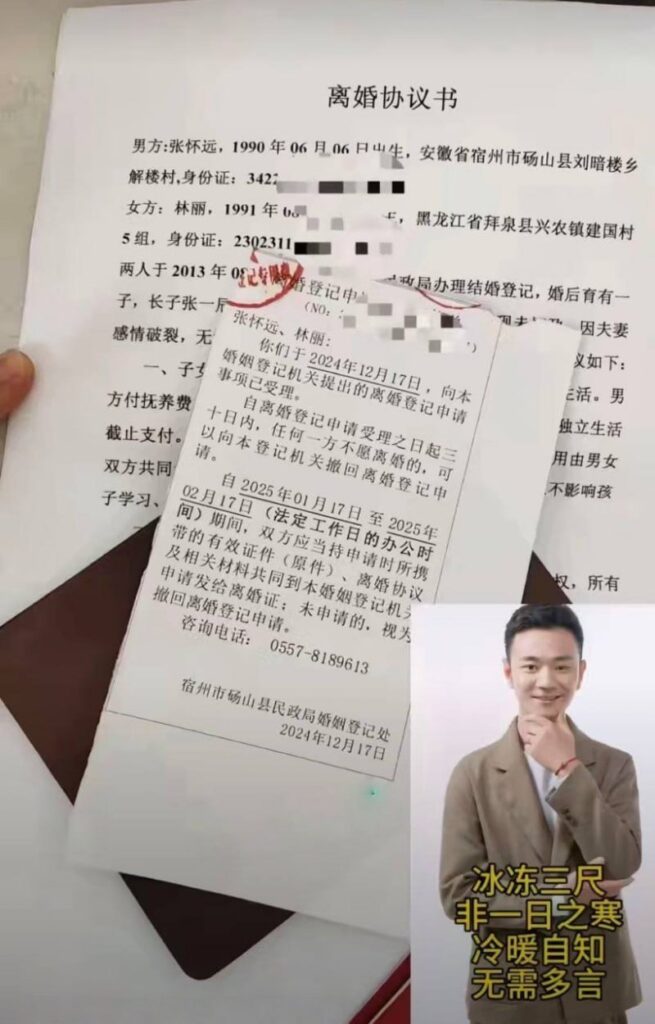 离婚协议书
男方:张怀远，1990 年 06 月 06 日出生，安徽省宿州市砀山县刘暗楼乡
解楼村,身份证：3422
女方：林丽，1991 年 0 黑龙江省拜泉县兴农镇建国村
5 组，身份证：2302311
两人于 2013 年 08 民政局办理结婚登记，婚后育有一
子，长子张一 因夫妻
感情破裂，无 议如下：
一、子女 生活。男
方付抚养费 独立生活
截止支付。 用由男女
双方共同 不影响孩
子学习、
权，所有
登记专用章
离婚登记申
(NO:
张怀远、林丽：
你们于2024年12月17日，向本
婚姻登记机关提出的离婚登记申请
事项已受理。
自离婚登记申请受理之日起三
十日内，任何一方不愿离婚的，可
以向本登记机关撤回离婚登记申
请。
自 2025年01月17日 至 2025年
02月17日（法定工作日的办公时
间）期间，双方应当持申请时所携
带的有效证件（原件）、离婚协议
及相关材料共同到本婚姻登记机关
申请发给离婚证；未申请的，视为
撤回离婚登记申请。
咨询电话： 0557-8189613
宿州市砀山县民政局婚姻登记处
2024年12月17日
冰冻三尺
非一日之寒
冷暖自知
无需多言